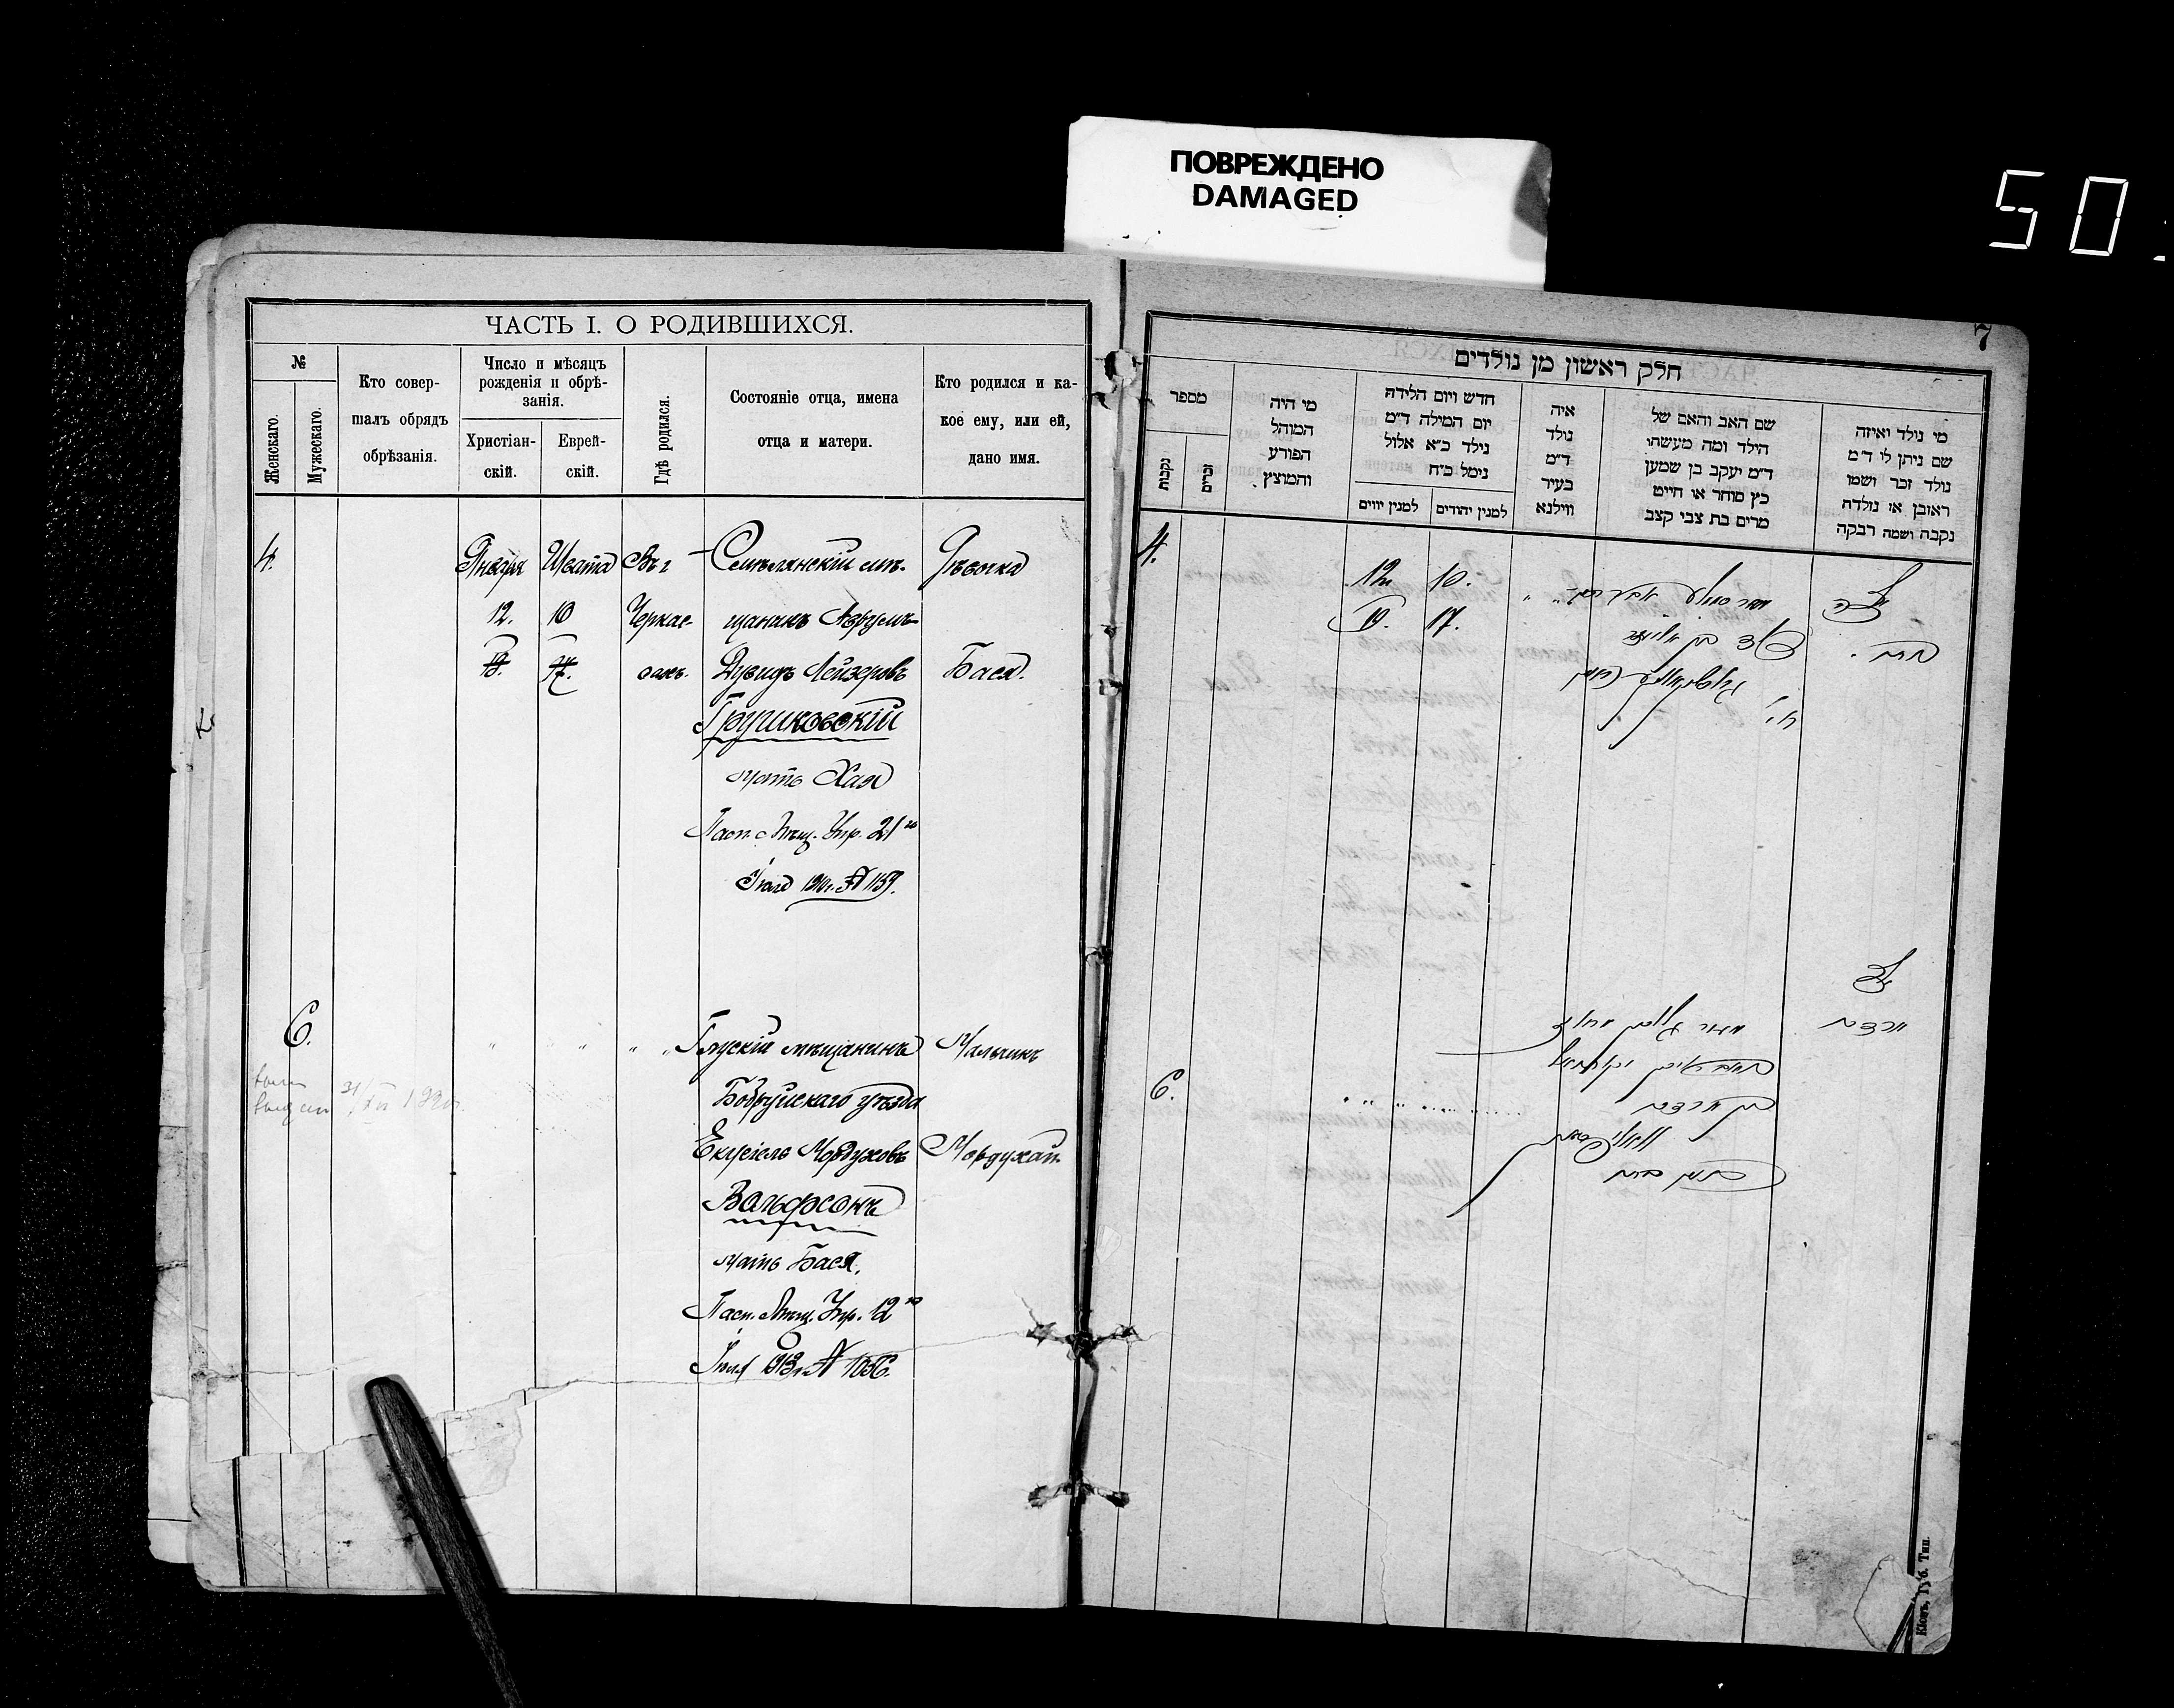 ПОВРЕЖДЕНО
DAMAGED
50
ЧАСТЬ I. О РОДИВШИХСЯ.
№
Женскаго.
Мужескаго.
Кто совер-
шалъ обрядъ
обрѣзанія.
Число и мѣсяцъ
рожденія и обрѣ-
занія.
Христіан-
скій.
Еврей-
скій.
Гдѣ родился.
Состояніе отца, имена
отца и матери.
Кто родился и ка-
кое ему, или ей,
дано имя.
4.
Января
12.
19.
Швата
10
17.
Въ г
Черкас-
сахъ.
Смѣлянскій мѣ-
щанинъ Аврумъ
Дувидъ Лейзеровъ
Грушковскій
мать Хая
Пасп. Мѣщ. Упр. 21го
Іюля 1910 г. № 1159.
Дѣвочка
Бася.
6.
" " " "
Глускій мѣщанинъ
Бобруйскаго уѣзда
Екусіель Мордуховъ
Вольфсонъ
мать Бася.
Пасп. Мѣщ. Упр. 12го
Іюля 1913 г. № 1056.
Мальчикъ
Мордухай.
7
חלק ראשון מן נולדים
מספר
נקבות
זכרים
מי היה
המוהל
הפורע
והמוצץ
חדש ויום הלידה
יום המילה ד״מ
נילד כ״א אלול
נימל כ״ח
למנין יווים
למנין יהודים
איה
נולד
ד״מ
בעיר
ווילנא
שם האב והאם של
הילד ומה מעשהו
ד״מ יעקב בן שמען
כץ סוחר או חייט
מרים בת צבי קצב
מי נולד ואיזה
שם ניתן לו ד״מ
נולד זכר ושמו
ראובן או נולדה
נקבה ושמה רבקה
4.
12
19.
10.
17.
6.
Кіевъ, Губ. Тип.